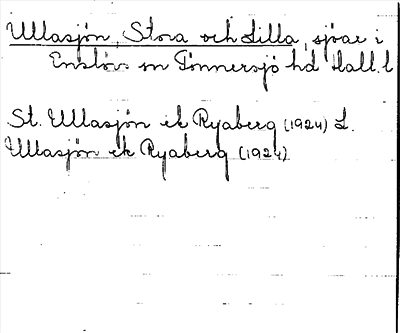 Ullasjön, Stora och Lilla, sjöar i
Enslövs sn Tönnersjö hd Hall. l
St. Ullasjön ek Ryaberg (1924) L.
Ullasjön ek Ryaberg (1924)